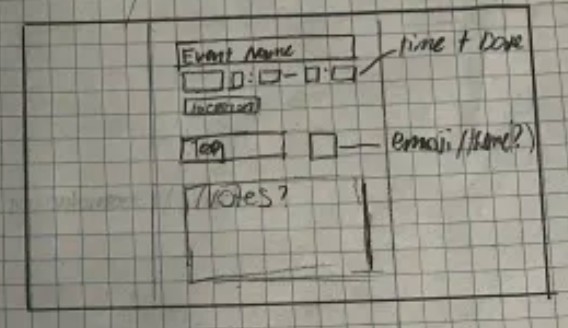 Event Name
time + Date
Location
Tag
emoji (theme?)
Notes?